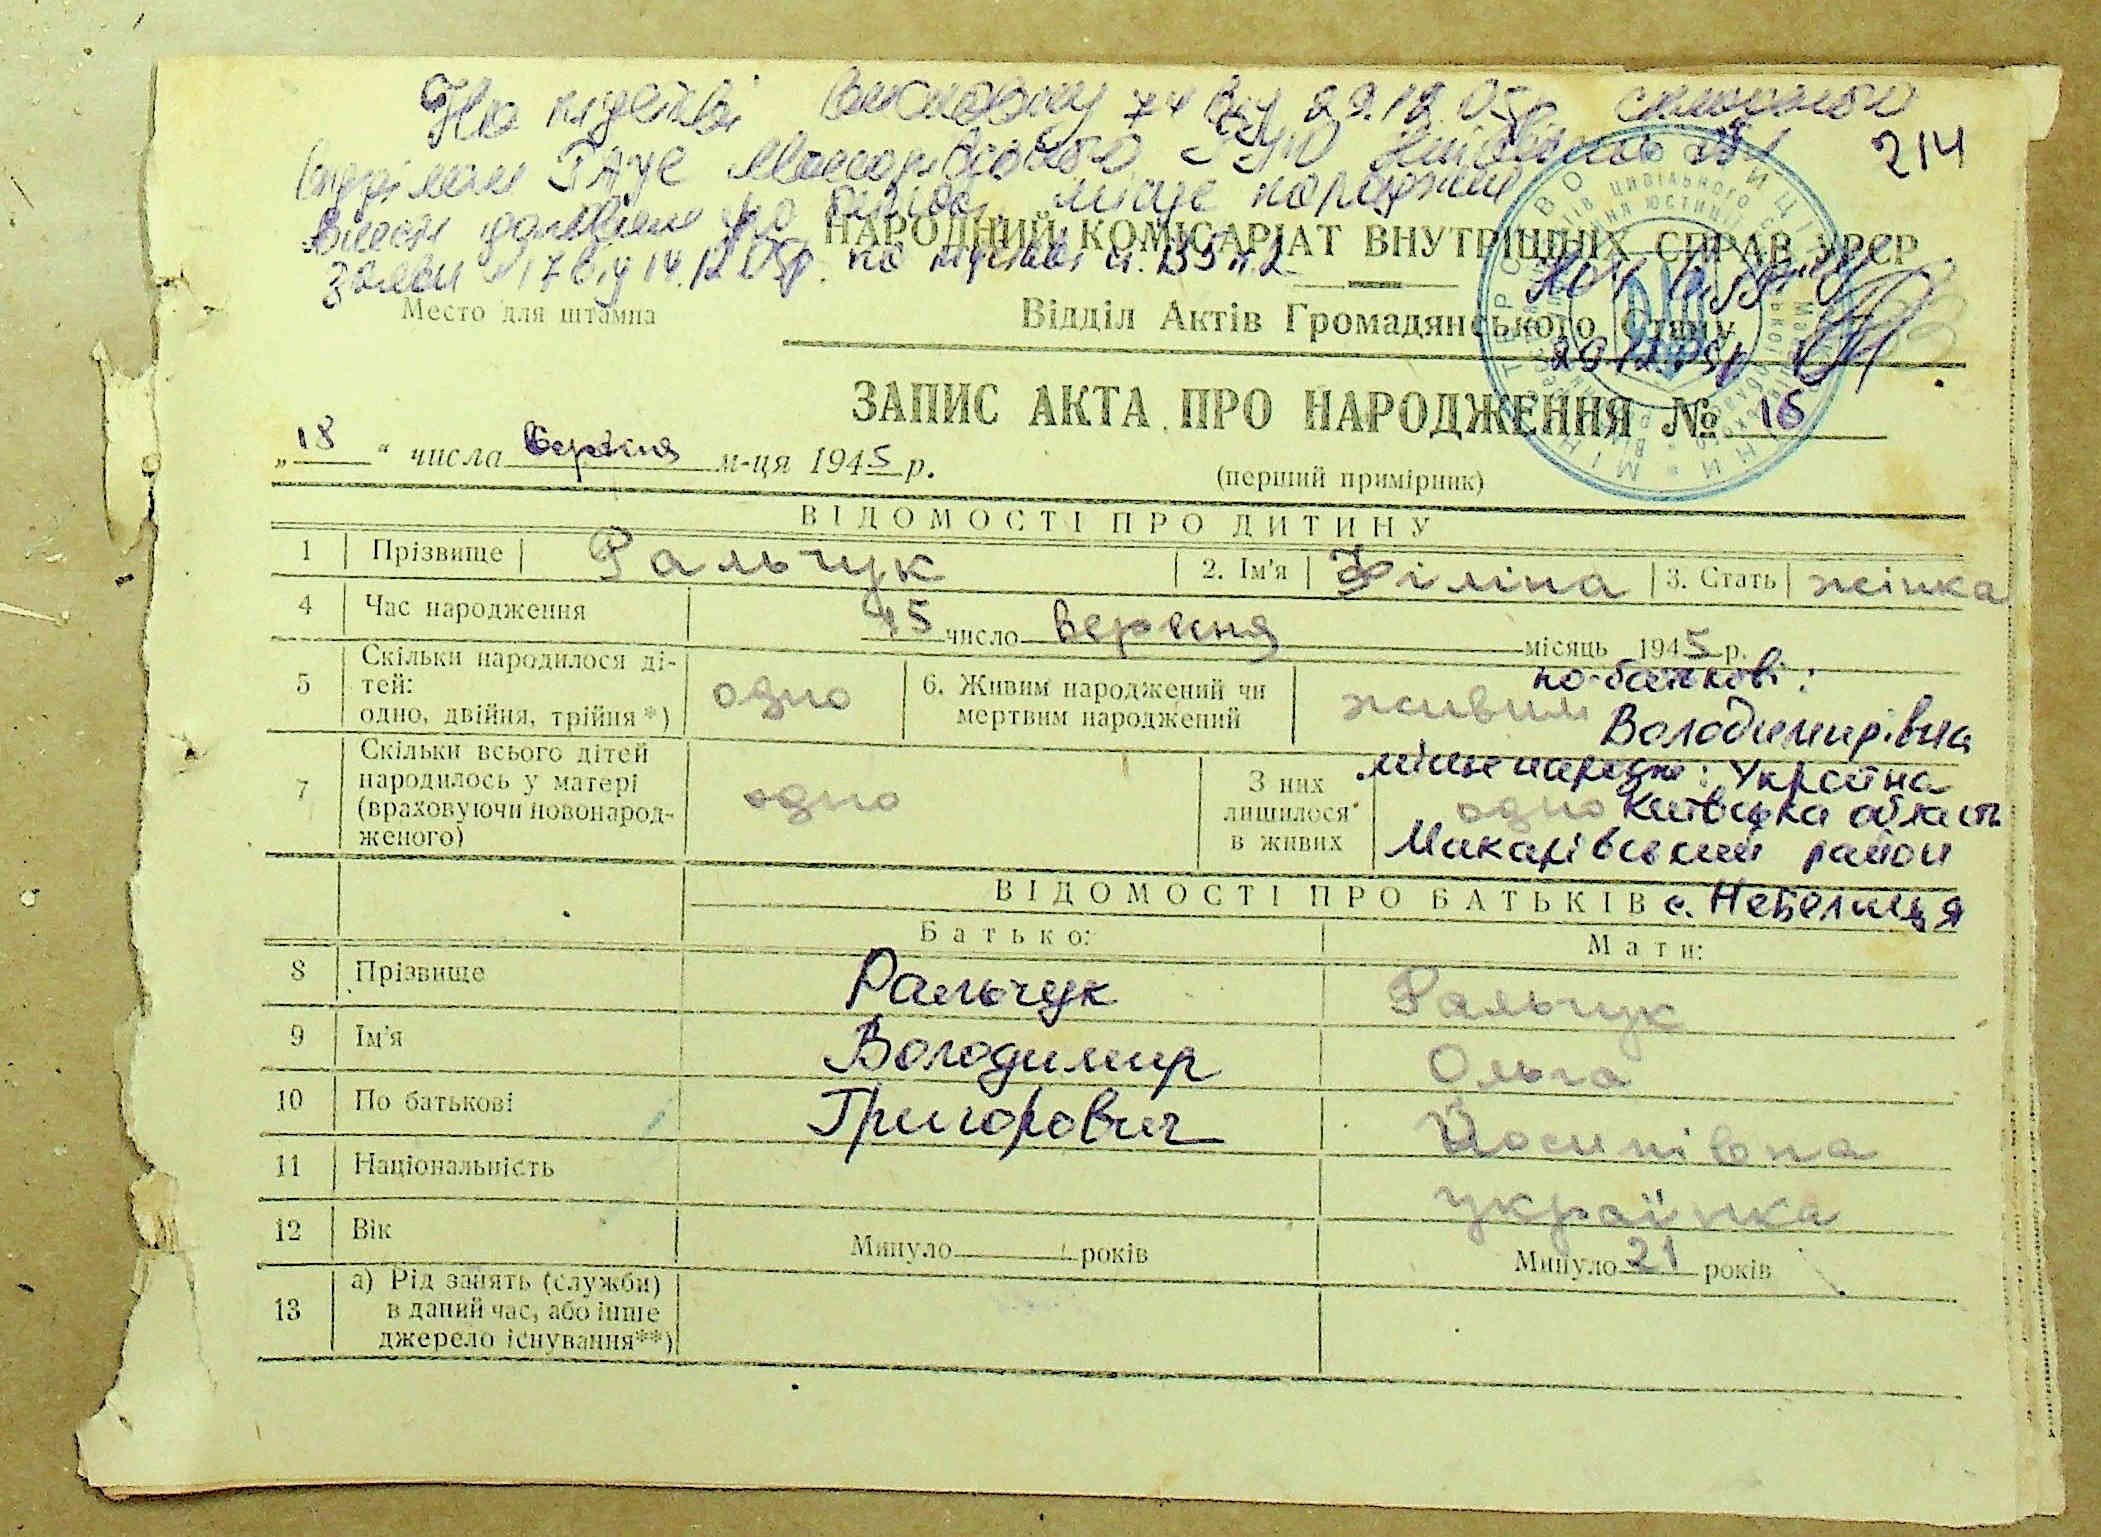 На підставі висновку 74 від 29.12.05р. складеного
відділом РАЦС Макарівського РУЮ Київської обл.
214
внесені доповнення по батькові, місце народження
НАРОДНИЙ КОМІСАРІАТ ВНУТРІШНІХ СПРАВ УРСР
заяви 17 від 14.12.05р. на підставі
Место для штампа
Відділ Актів Громадянського Стану
29.12.05р
ЗАПИС АКТА ПРО НАРОДЖЕННЯ № 16
„18“ числа вересня м-ця 1945 р.
(перший примірник)
ВІДОМОСТІ ПРО ДИТИНУ
1 Прізвище Ральчук 2. Ім'я Філіпа 3. Стать жінка
4 Час народження 15 число вересня місяць 1945 р.
по-батькові:
5 Скільки народилося ді-
тей:
одно, двійня, трійня*) одно 6. Живим народжений чи
мертвим народжений живим
Володимирівна
7 Скільки всього дітей
народилось у матері
(враховуючи новонарод-
женого) одно З них
лишилося
в живих одно
місце народж: Україна
Київська область
Макарівський район
ВІДОМОСТІ ПРО БАТЬКІВ с. Небелиця
Батько: Мати:
8 Прізвище Ральчук Ральчук
9 Ім'я Володимир Ольга
10 По батькові Григорович Йосипівна
11 Національність українка
12 Вік Минуло років Минуло 21 років
13 а) Рід занять (служби)
в даний час, або інше
джерело існування**)